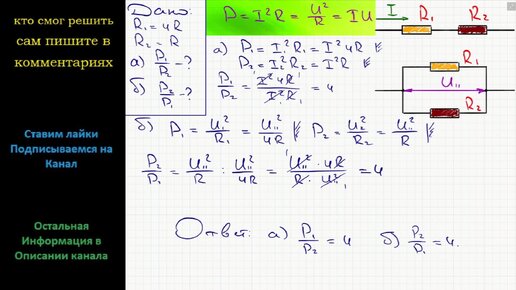 кто смог решить
сам пишите в
комментариях
Ставим лайки
Подписываемся на
Канал
Остальная
Информация в
Описании канала
Дано:
R₁ = 4R
R₂ = R
а) P₁/P₂ - ?
б) P₂/P₁ - ?
P = I²R = U²/R = IU
а) P₁ = I²R₁ = I²4R
P₂ = I²R₂ = I²R
P₁/P₂ = I²4R/I²R = 4
б) P₁ = U₁₁²/R₁ = U₁₁²/4R P₂ = U₁₁²/R₂ = U₁₁²/R
P₂/P₁ = U₁₁²/R : U₁₁²/4R = U₁₁² · 4R/R · U₁₁² = 4
Ответ: а) P₁/P₂ = 4 б) P₂/P₁ = 4.
I R₁ R₂
R₁
U₁₁
R₂